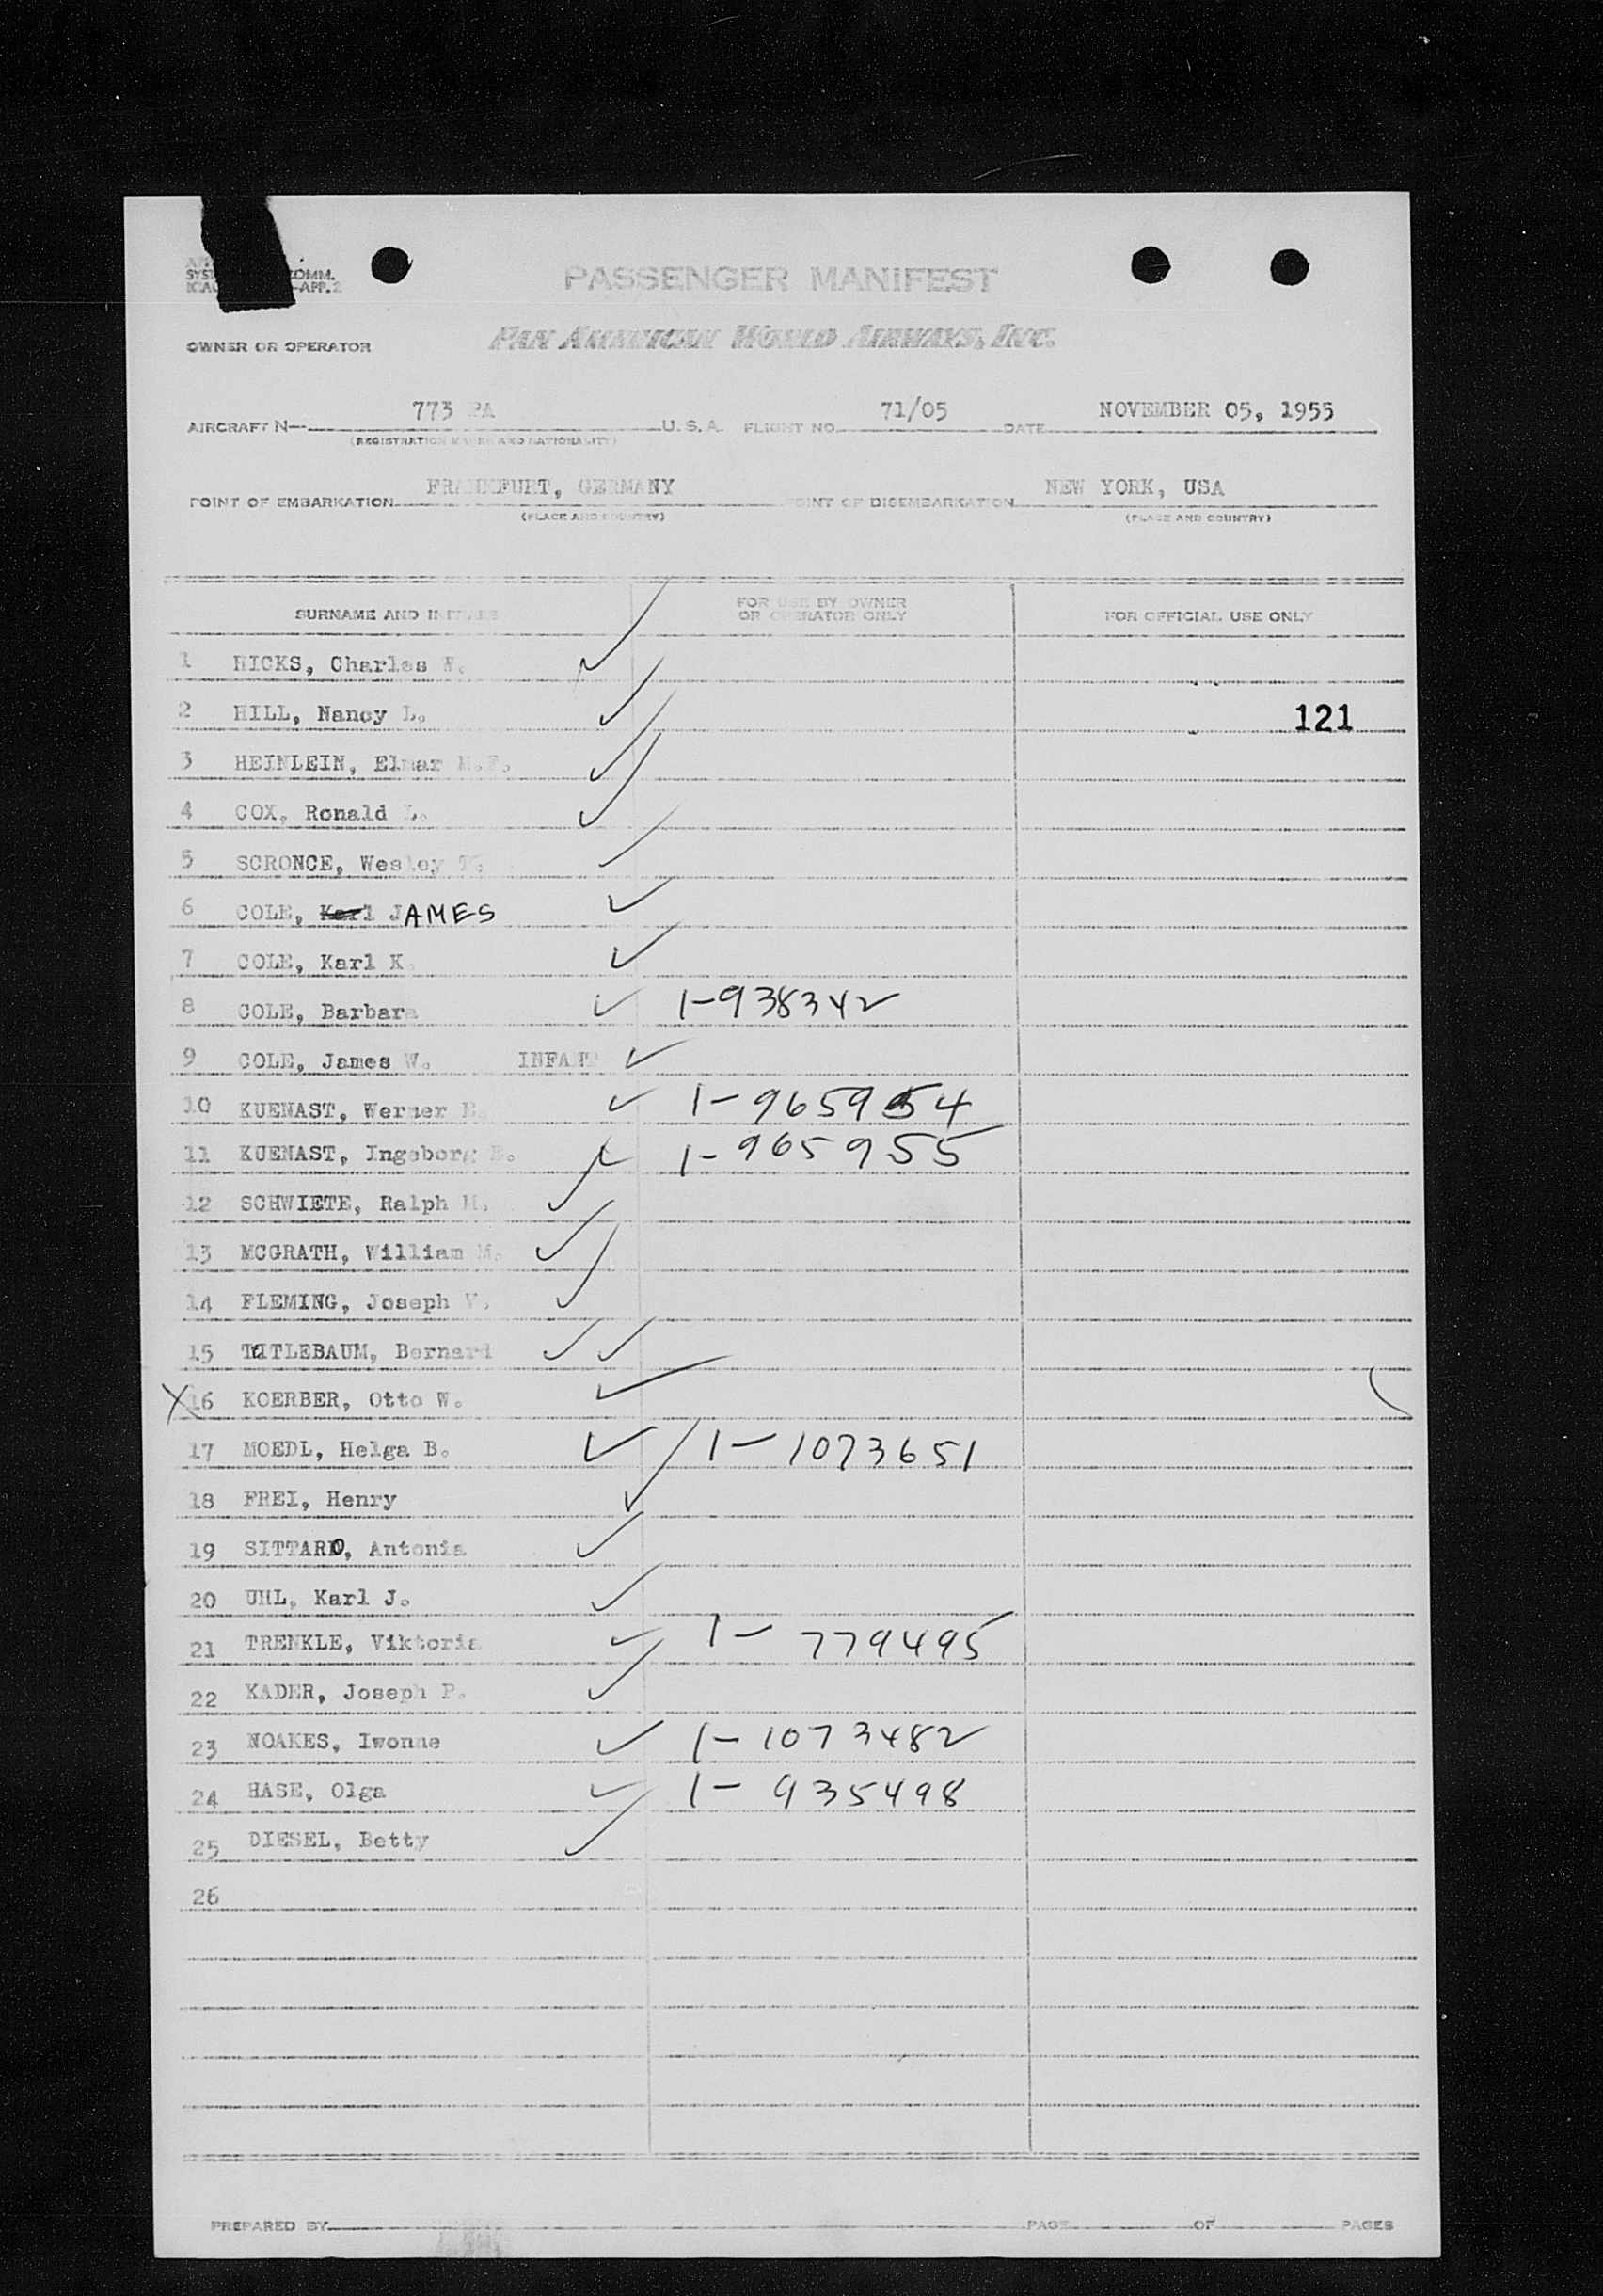 COMM.
-APP. 2
PASSENGER MANIFEST
OWNER OR OPERATOR
PAN AMERICAN WORLD AIRWAYS, INC.
AIRCRAFT N— 773 PA U. S. A. FLIGHT NO. 71/05 DATE NOVEMBER 05, 1955
(REGISTRATION MARKS AND NATIONALITY)
POINT OF EMBARKATION FRANKFURT, GERMANY POINT OF DISEMBARKATION NEW YORK, USA
(PLACE AND COUNTRY) (PLACE AND COUNTRY)
SURNAME AND INITIALS FOR USE BY OWNER OR OPERATOR ONLY FOR OFFICIAL USE ONLY
1 HICKS, Charles W.
2 HILL, Nancy L. 121
3 HEINLEIN, Elmar M.F.
4 COX, Ronald L.
5 SCRONCE, Wesley
6 COLE, Karl JAMES
7 COLE, Karl K
8 COLE, Barbara 1-938342
9 COLE, James W. INFANT
10 KUENAST, Werner 1-965954
11 KUENAST, Ingeborg 1-965955
12 SCHWIETE, Ralph H.
13 MCGRATH, William M.
14 FLEMING, Joseph V.
15 TITLEBAUM, Bernard
X 16 KOERBER, Otto W.
17 MOEDL, Helga B. 1-1073651
18 FREI, Henry
19 SITTARD, Antonia
20 UHL, Karl J.
21 TRENKLE, Viktoria 1-779495
22 KADER, Joseph P.
23 NOAKES, Iwonne 1-1073482
24 HASE, Olga 1-935498
25 DIESEL, Betty
26
PREPARED BY PAGE OF PAGES